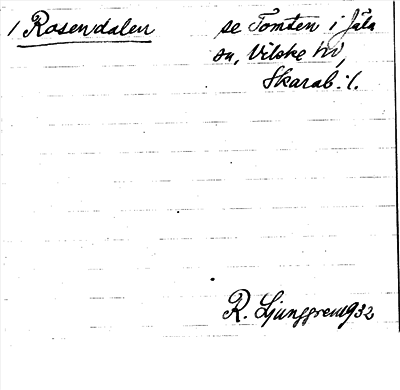 / Rosendalen se Tomten i Jäla
sn, Vilske hd,
Skarab. l.
R. Ljunggren 1932